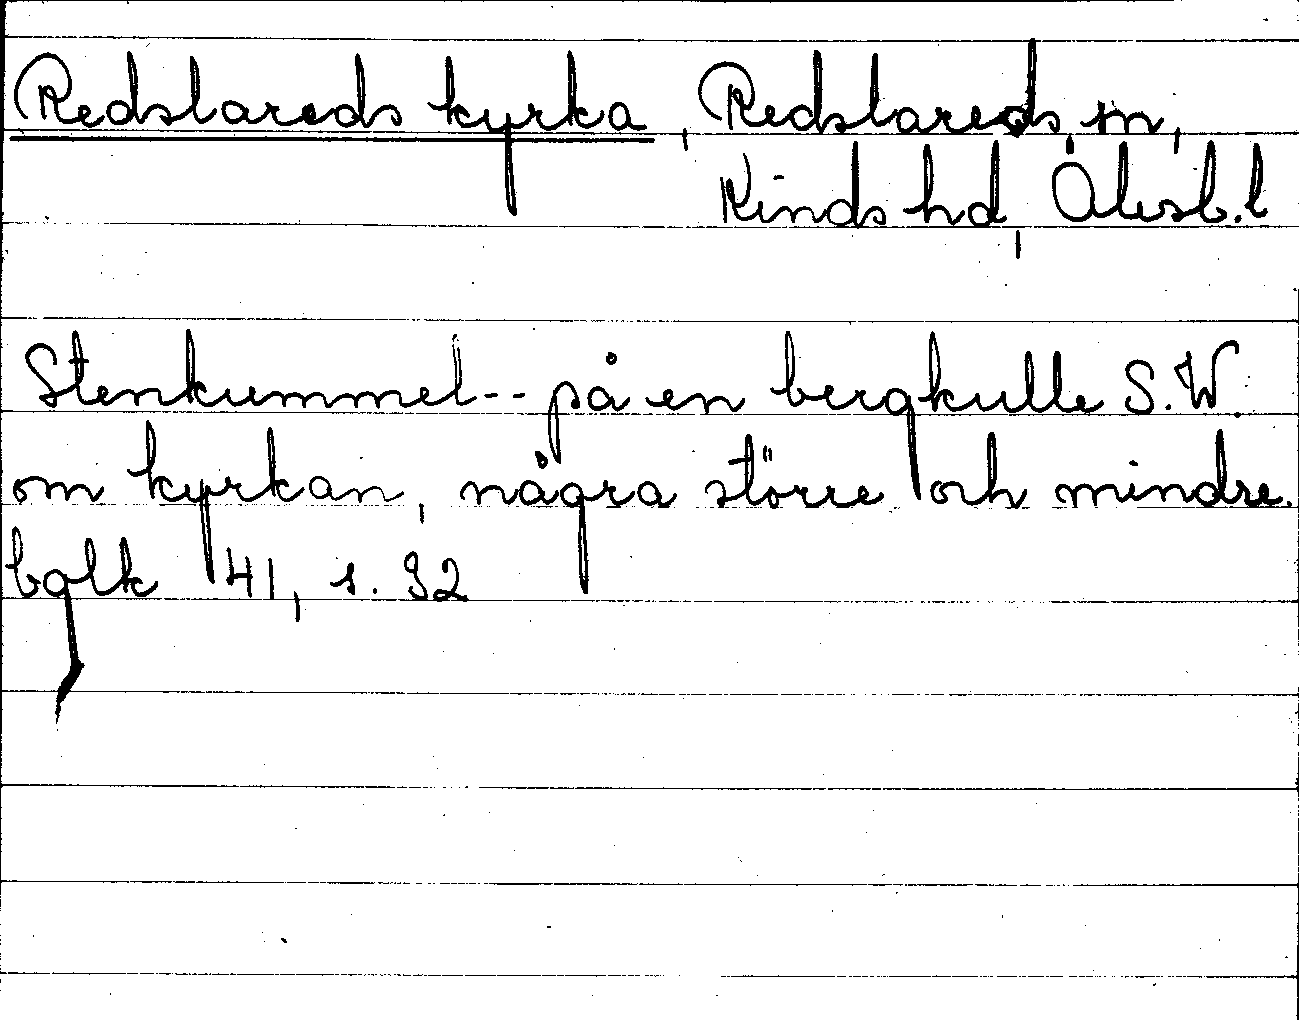 Redslareds kyrka, Redslareds sn,
Kinds hd, Älvsb. l
Stenkummel -- på en bergkulle S.W.
om kyrkan, några större och mindre.
bglk 41, s. 92